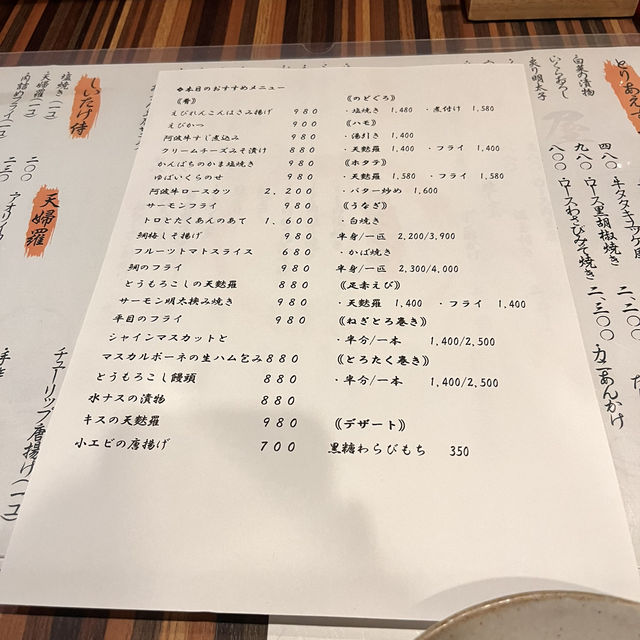 ◆本日のおすすめメニュー
《肴》
えびれんこんはさみ揚げ 980
えびかつ 900
阿波牛すじ煮込み 980
クリームチーズみそ漬け 880
かんぱちのかま塩焼き 980
ゆばいくらのせ 980
阿波牛ロースカツ 2,200
サーモンフライ 980
トロとたくあんのあて 1,600
鯛梅しそ揚げ 980
フルーツトマトスライス 680
鯛のフライ 980
とうもろこしの天麩羅 880
サーモン明太挟み焼き 980
平目のフライ 980
シャインマスカットと
マスカルポーネの生ハム包み 880
とうもろこし饅頭 880
水ナスの漬物 880
キスの天麩羅 980
小エビの唐揚げ 700
《のどぐろ》
・塩焼き 1,480 ・煮付け 1,580
《ハモ》
・湯引き 1,400
・天麩羅 1,400 ・フライ 1,400
《ホタテ》
・天麩羅 1,580 ・フライ 1,580
・バター炒め 1,600
《うなぎ》
・白焼き
半身/一匹 2,200/3,900
・かば焼き
半身/一匹 2,300/4,000
《足赤えび》
・天麩羅 1,400 ・フライ 1,400
《ねぎとろ巻き》
・半分/一本 1,400/2,500
《とろたく巻き》
・半分/一本 1,400/2,500
《デザート》
黒糖わらびもち 350
とりあえず
白菜の漬物
いくらおろし
炙り明太子
四八〇
九八〇
八〇〇
ロース黒胡椒焼き 二、二〇〇
ロースわさびみそ焼き 二、三〇〇
カニあんかけ
しいたけ侍
塩焼き(一コ)
天婦羅(一コ) 二〇〇
肉詰めフライ(一コ) 二三〇
天婦羅
アオリイカ
チューリップ唐揚げ(一コ)